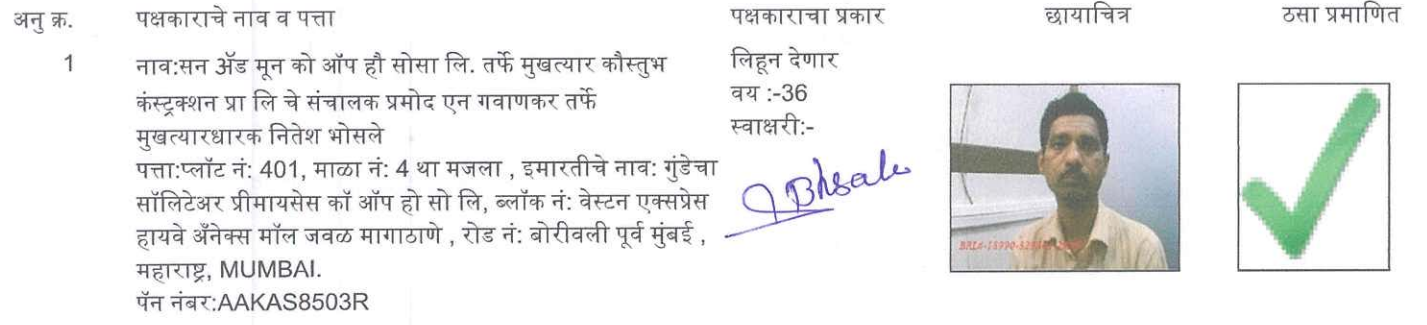 अनु क्र. पक्षकाराचे नाव व पत्ता पक्षकाराचा प्रकार छायाचित्र ठसा प्रमाणित
1 नाव:सन अँड मून को ऑप हौ सोसा लि. तर्फे मुखत्यार कौस्तुभ
कंस्ट्रक्शन प्रा लि चे संचालक प्रमोद एन गवाणकर तर्फे
मुखत्यारधारक नितेश भोसले
पत्ता:प्लॉट नं: 401, माळा नं: 4 था मजला , इमारतीचे नाव: गुंडेचा
सॉलिटेअर प्रीमायसेस कॉ ऑप हो सो लि, ब्लॉक नं: वेस्टन एक्सप्रेस
हायवे अँनेक्स मॉल जवळ मागाठाणे , रोड नं: बोरीवली पूर्व मुंबई ,
महाराष्ट्र, MUMBAI.
पॅन नंबर:AAKAS8503R
लिहून देणार
वय :-36
स्वाक्षरी:-